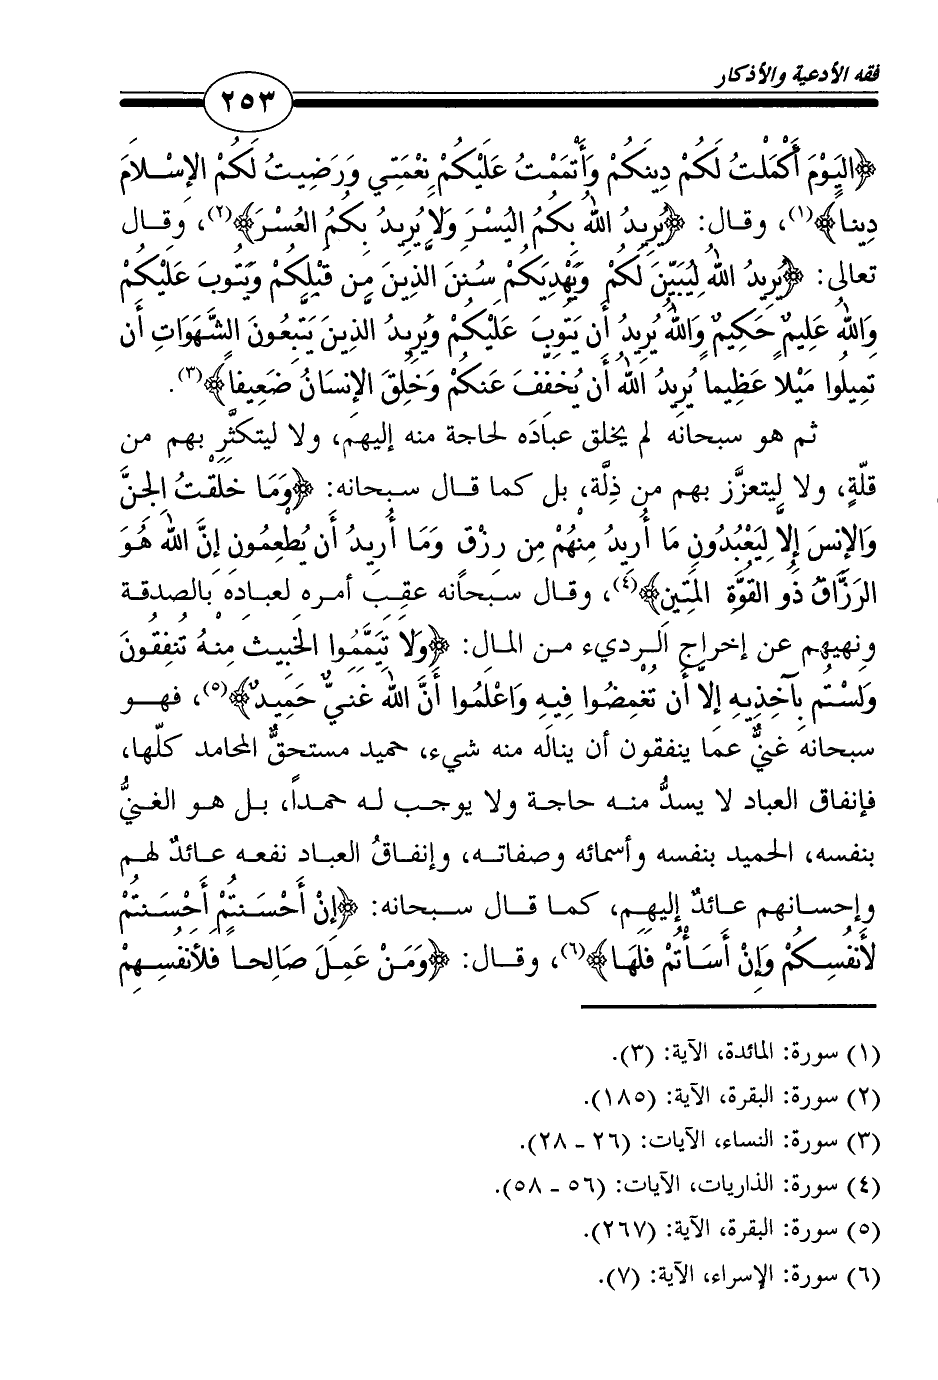 فقه الأدعية والأذكار
٢٥٣
﴿اليَوْمَ أَكْمَلْتُ لَكُمْ دِينَكُمْ وَأَتْمَمْتُ عَلَيْكُمْ نِعْمَتِي وَرَضِيتُ لَكُمْ الإِسْلامَ
دِينا﴾(١)، وقال: ﴿يُرِيدُ اللهُ بِكُمُ اليُسْرَ وَلا يُرِيدُ بِكُمُ العُسْرَ﴾(٢)، وقال
تعالى: ﴿يُرِيدُ اللهُ لِيُبَيِّنَ لَكُمْ وَيَهْدِيَكُمْ سُنَنَ الذِينَ مِن قَبْلِكُمْ وَيَتُوبَ عَلَيْكُمْ
وَاللهُ عَلِيمٌ حَكِيمٌ وَاللهُ يُرِيدُ أَن يَتُوبَ عَلَيْكُمْ وَيُرِيدُ الذِينَ يَتَّبِعُونَ الشَّهَوَاتِ أَن
تَمِيلُوا مَيْلا عَظِيماً يُرِيدُ اللهُ أَن يُخَفِّفَ عَنكُمْ وَخُلِقَ الإِنسَانُ ضَعِيفا﴾(٣).
ثم هو سبحانه لم يخلق عبادَه لحاجة منه إليهم، ولا ليتكثَّر بهم من
قلّةٍ، ولا ليتعزَّز بهم من ذِلَّة، بل كما قال سبحانه: ﴿وَمَا خَلَقْتُ الجِنَّ
وَالإِنسَ إِلاَّ لِيَعْبُدُونِ مَا أُرِيدُ مِنْهُمْ مِن رِزْقٍ وَمَا أُرِيدُ أَن يُطْعِمُونِ إِنَّ اللهَ هُوَ
الرَزَّاقُ ذُو القُوَّةِ المَتِين﴾(٤)، وقال سبحانه عقِب أمره لعباده بالصدقة
ونهيهم عن إخراج الرديء من المال: ﴿وَلَا تَيَمَّمُوا الخَبِيثَ مِنهُ تُنفِقُونَ
وَلَسْتُم بِآخِذِيهِ إِلاَّ أَن تُغْمِضُوا فِيهِ وَاعْلَمُوا أَنَّ اللهَ غَنيٌّ حَمِيدٌ﴾(٥)، فهو
سبحانه غنيٌّ عما ينفقون أن ينالَه منه شيء، حميد مستحقٌّ المحامد كلّها،
فإنفاق العباد لا يسدُّ منه حاجة ولا يوجب له حمداً، بل هو الغنيُّ
بنفسه، الحميد بنفسه وأسمائه وصفاته، وإنفاقُ العباد نفعه عائدٌ لهم
وإحسانهم عائدٌ إليهم، كما قال سبحانه: ﴿إِنْ أَحْسَنتُمْ أَحْسَنتُمْ
لأَنفُسِكُمْ وَإِنْ أَسَأْتُمْ فَلَهَا﴾(٦)، وقال: ﴿وَمَنْ عَمِلَ صَالِحاً فَلأَنفُسِهِمْ
(١) سورة: المائدة، الآية: (٣).
(٢) سورة: البقرة، الآية: (١٨٥).
(٣) سورة: النساء، الآيات: (٢٦ ـ ٢٨).
(٤) سورة: الذاريات، الآيات: (٥٦ ـ ٥٨).
(٥) سورة: البقرة، الآية: (٢٦٧).
(٦) سورة: الإسراء، الآية: (٧).